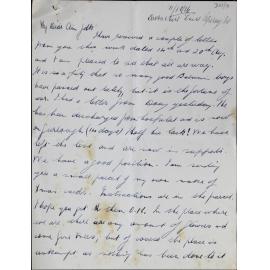 My Dear Ann Jeff
Have received a couple of letters
from you this week dated 14th and 20th Aug.
and I am pleased to see that all are way.
It is a pity that so many good Balmain boys
have passed out lately but it is the fortune of
war. I had a letter from Danny yesterday. He
has been discharged from hospital and is now
on furlough (10 days) Half his luck! We have
left the and are now in supports
We have a good position. I am sending
you a small parcel of my own make of
Xmas cards. Instructions are in the parcel
I hope you get them O.K. In the place where
we are there are any amount of flowers and
some fruit trees, but of course the place is
unkempt as nothing has been done to it